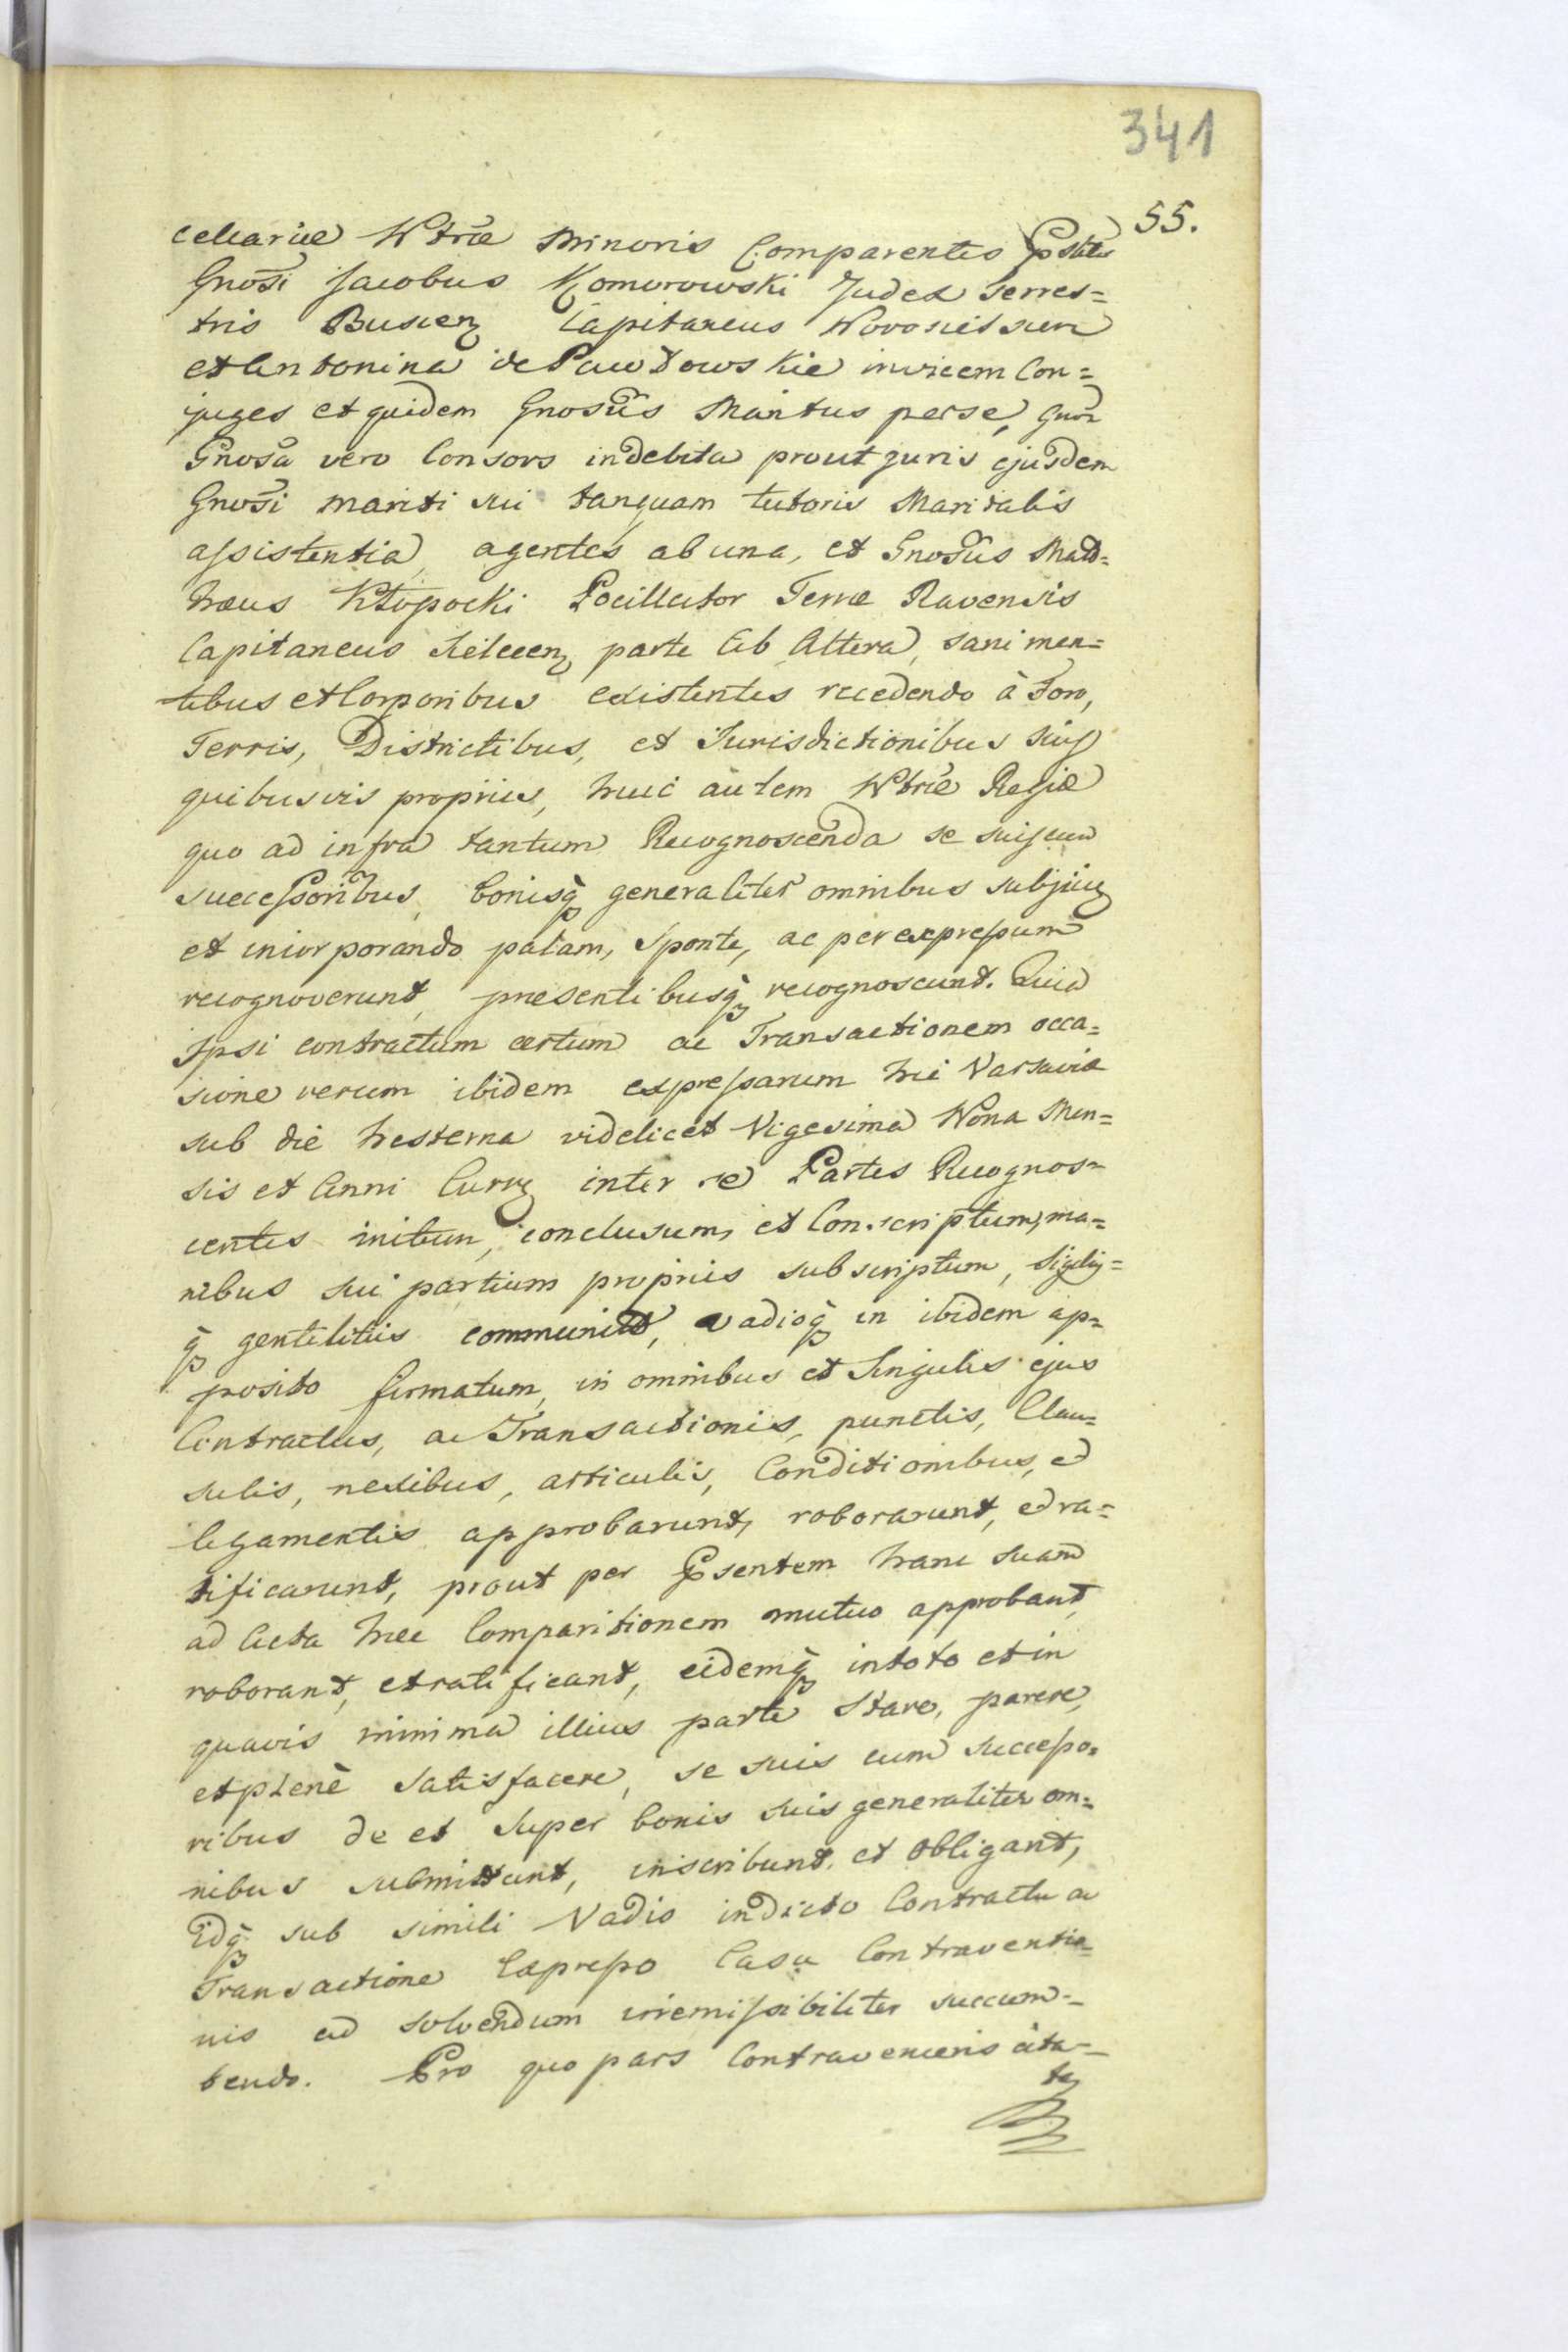 341
55.
cellariæ Wtræ Minoris Comparentes Pstes
Gnosi Jacobus Komorowski Judex Terres=
tris Buscen Capitaneus Novosielscen
et Antonina de Pawłowskie invicem Con=
juges et quidem Gnosus Maritus per se, Gnos
Gnosa vero Consors indebita prout juris ejusdem
Gnosi mariti sui tanquam tutoris Maritalis
assistentia, agentes ab una, et Gnosus Mat=
hæus Kłopocki Pocillator Terræ Ravensis
Capitaneus parte ab Altera, sani men=
tibus et Corporibus existentes recedendo à Foro,
Terris, Districtibus, et Jurisdictionibus suis
quibusvis propriis, huic autem Wtræ Regiæ
quo ad infra tantum Recognoscenda se suiscum
successoribus, bonisq generaliter omnibus subjicien
et incorporando palam, sponte, ac per expressum
recognoverunt, præsentibusq recognoscunt. Quia
ipsi contractum certum ac Transactionem occa=
sione rerum ibidem expressarum hic Varsaviæ
sub die hesterna videlicet Vigesima Nona Men=
sis et Anni Curren inter se Partes Recognos=
centes initum, conclusum, et Conscriptum, ma=
nibus sui partium propriis subscriptum, sigilis=
q gentilitiis communit, vadioq in ibidem ap=
posito firmatum, in omnibus et Singulis ejus
Contractus, ac Transactionis, punctis, Clau=
sulis, nexibus, articulis, Conditionibus, et
legamentis approbarunt, roborarunt, et ra=
tificarunt, prout per Psentem hanc suam
ad Acta hæc Comparitionem mutuo approbant,
roborant, et ratificant, eidemq in toto et in
quavis minima illius parte stare, parere,
et plenè satisfacere, se suis cum successo=
ribus de et super bonis suis generaliter om=
nibus submittunt, inscribunt, et obligant,
Idq sub simili Vadio in dicto Contractu ac
Transactione Expresso Casu Contraventio=
nis ad solvendum irremissibiliter succum=
bendo. Pro quo pars Contraveniens cita=
ta